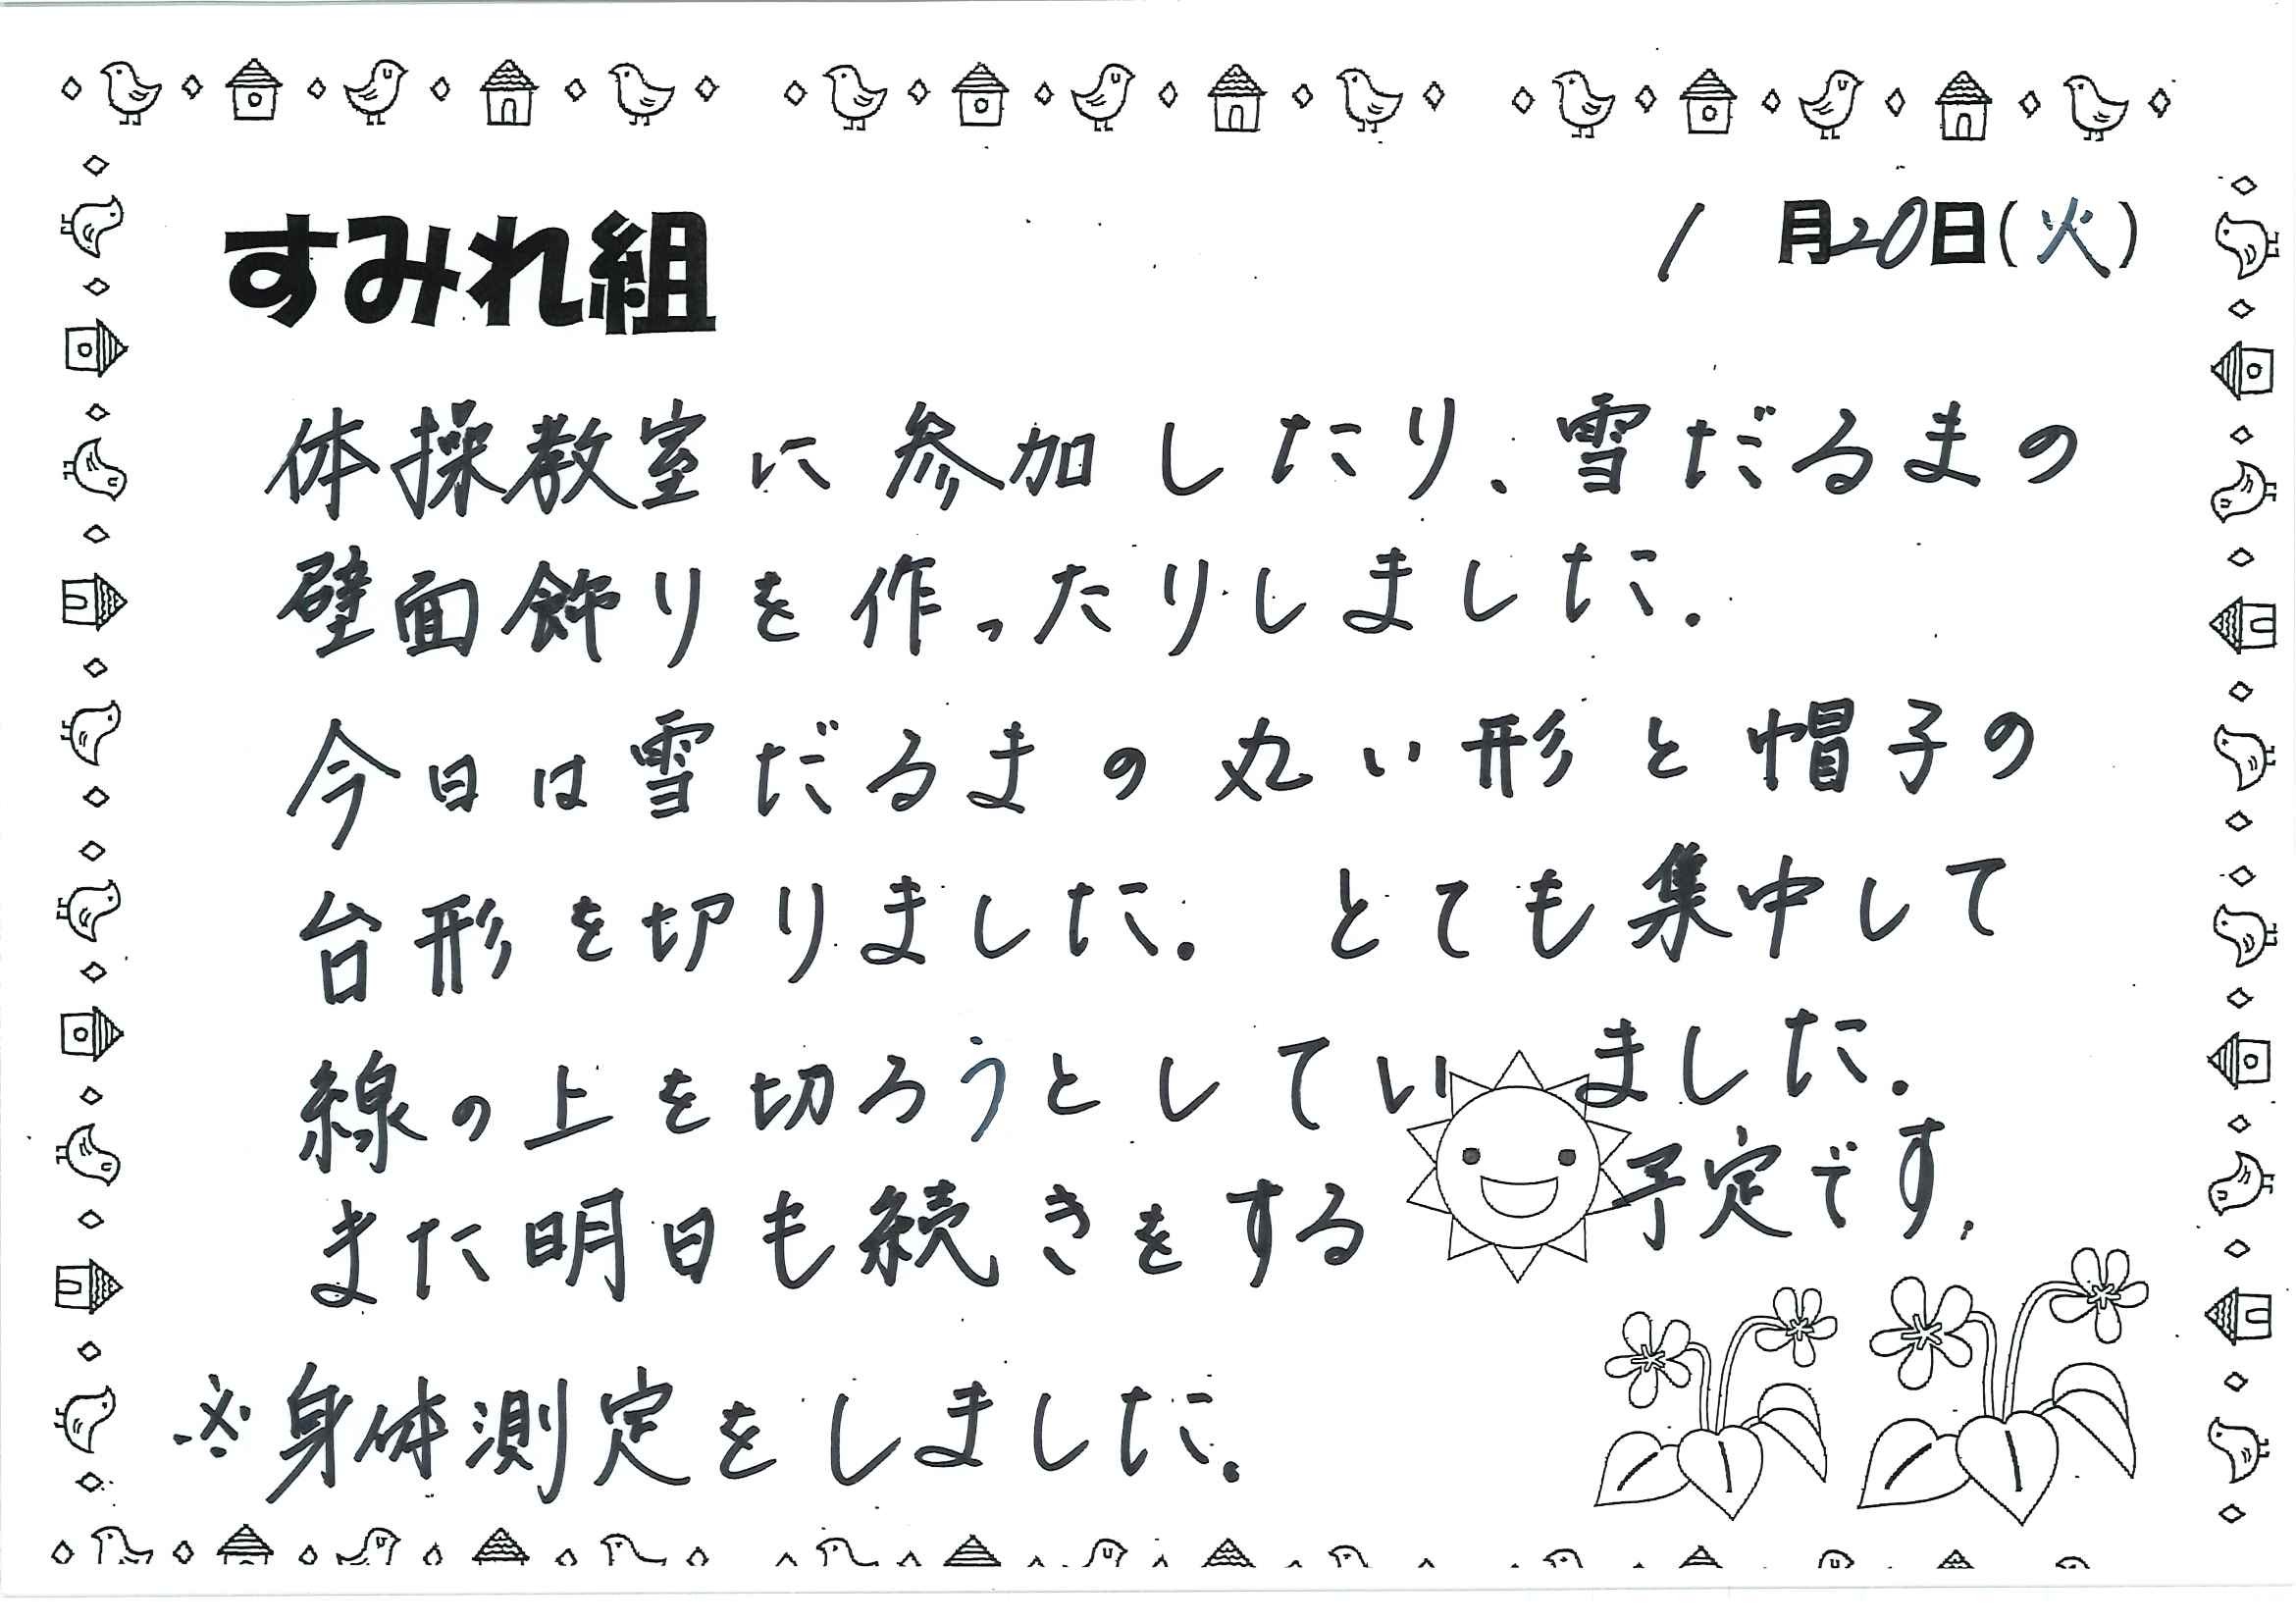 すみれ組
1月20日(火)
体操教室に参加したり、雪だるまの
壁面飾りを作ったりしました。
今日は雪だるまの丸い形と帽子の
台形を切りました。とても集中して
線の上を切ろうとしていました。
また明日も続きをする予定です。
※身体測定をしました。